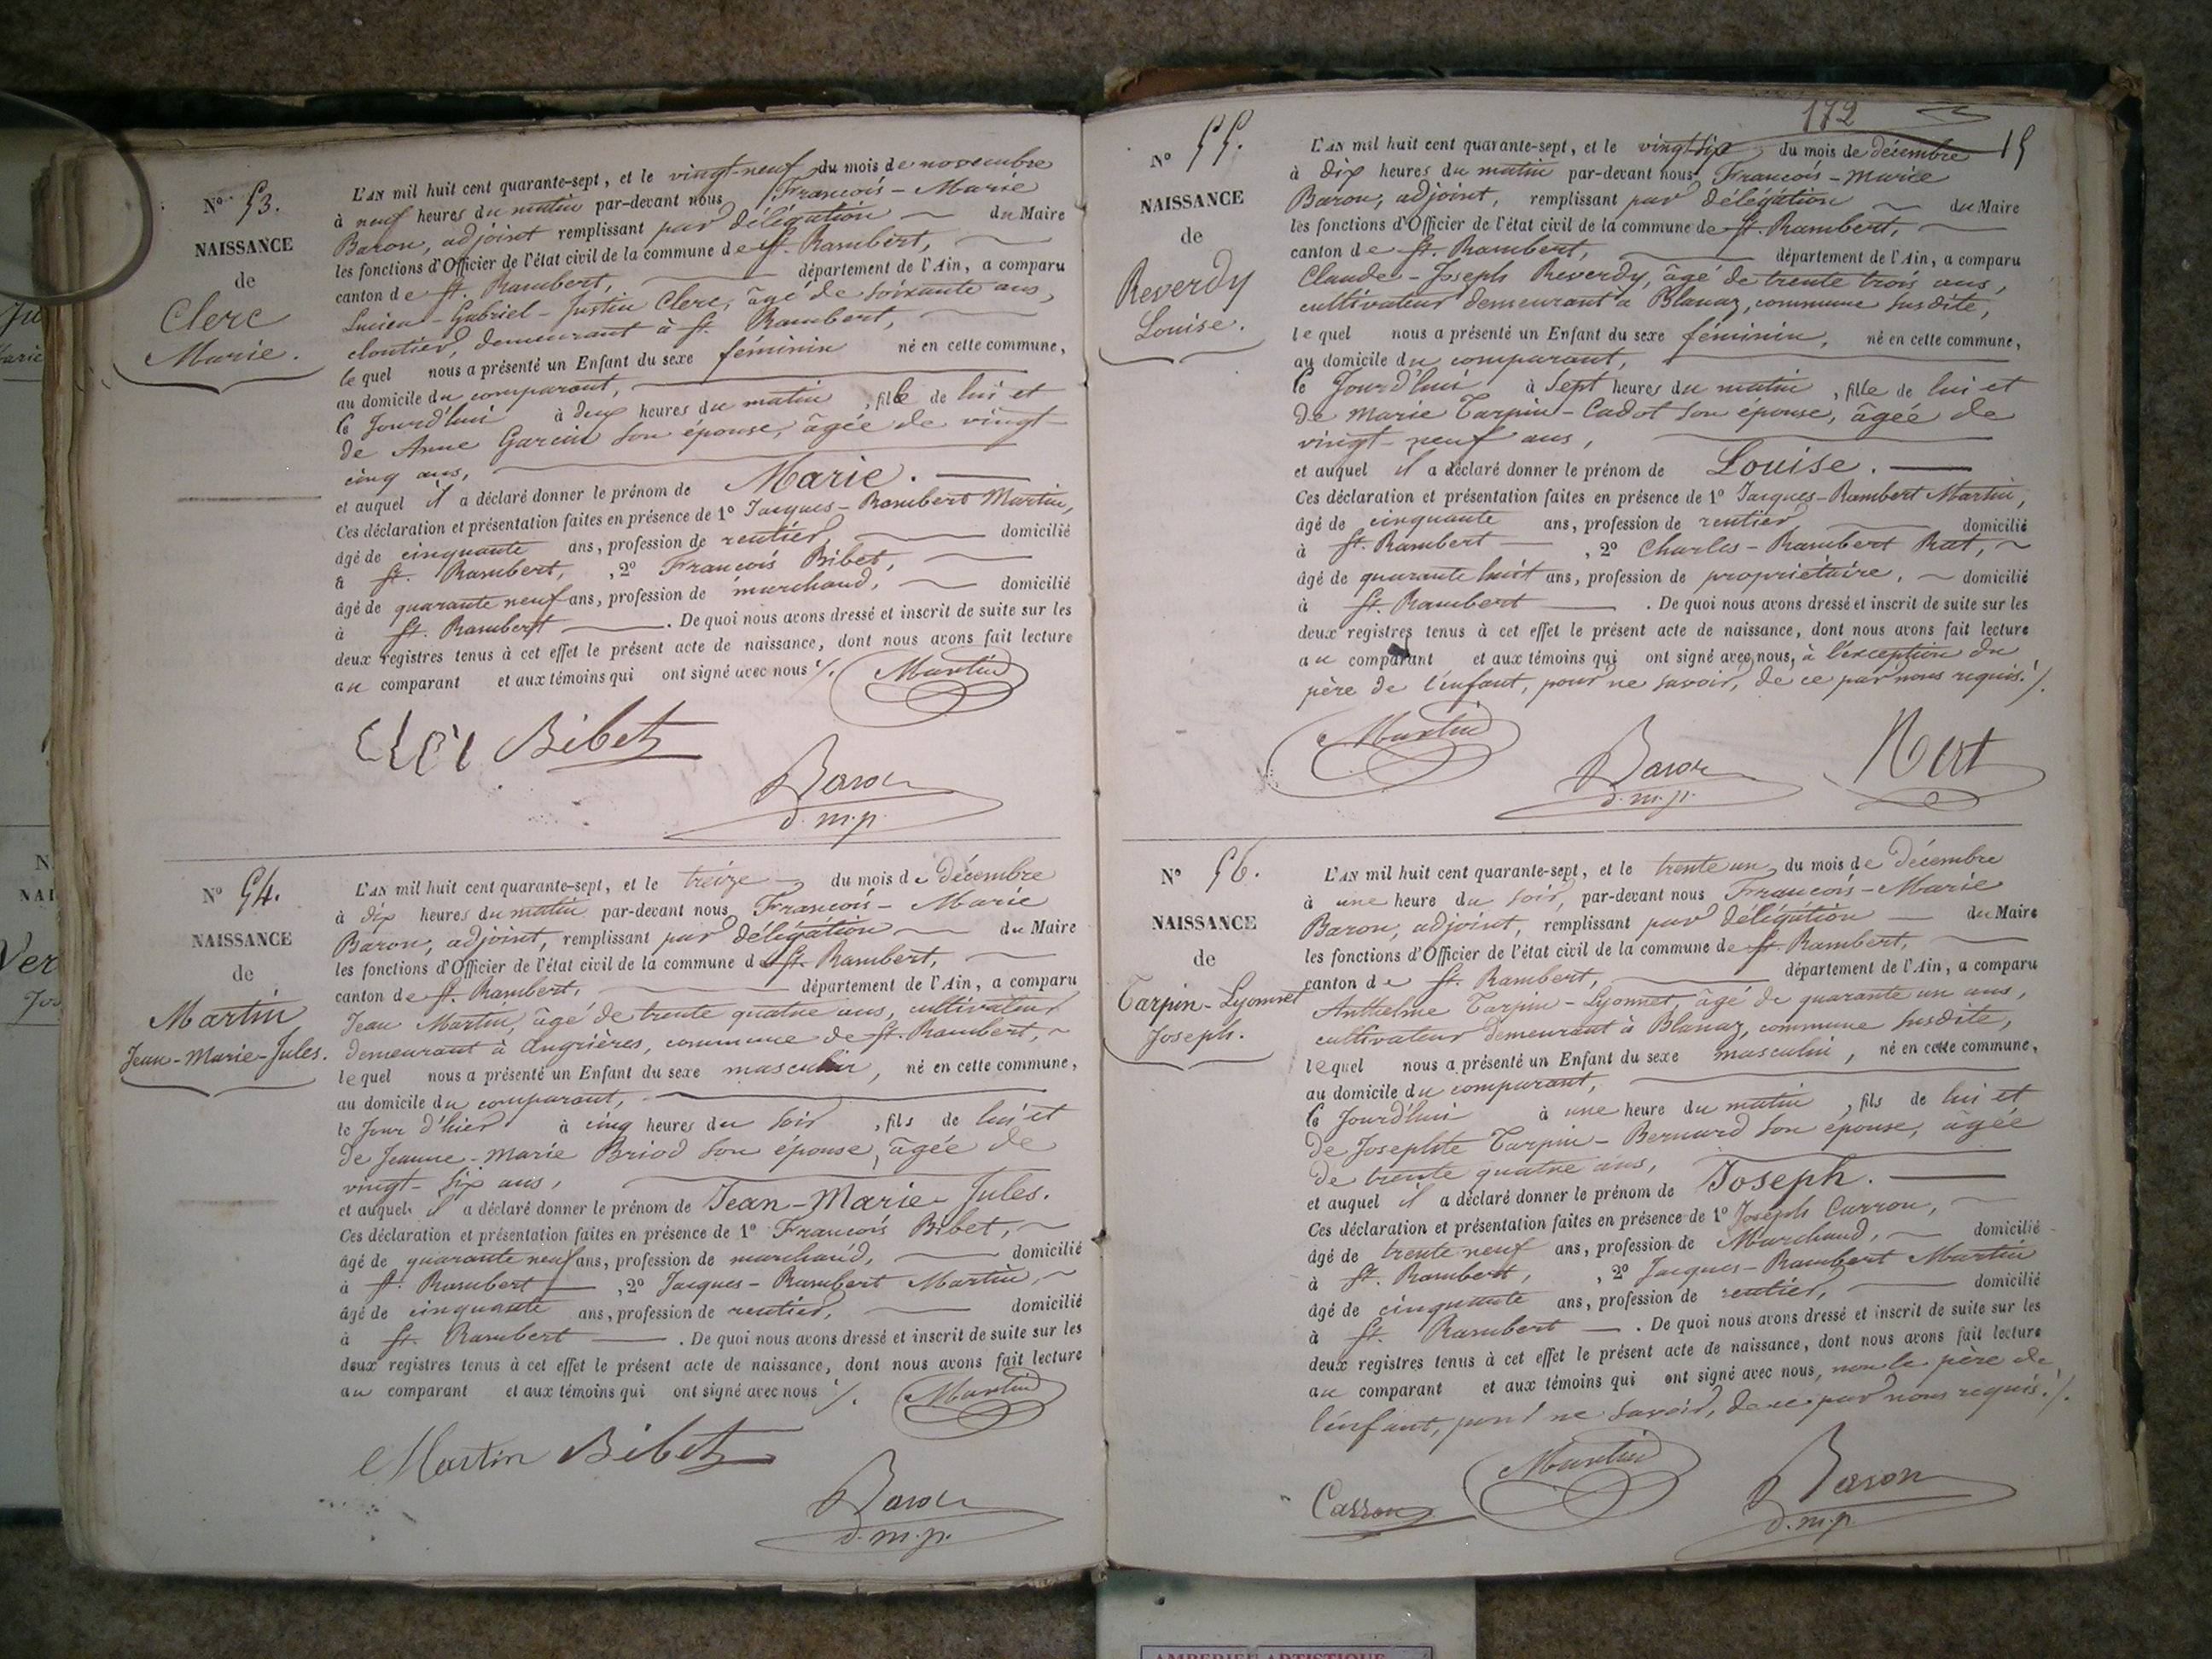 Nº 53.
NAISSANCE
de
Clerc
Marie.
L'AN mil huit cent quarante-sept, et le vingt-neuf du mois de novembre
à neuf heures du matin par-devant nous François-Marie
Baron, adjoint remplissant par délégation du Maire
les fonctions d'Officier de l'état civil de la commune de St. Rambert,
canton de St. Rambert, département de l'Ain, a comparu
Lucien-Gabriel-Justin Clerc, âgé de soixante ans,
cloutier, demeurant à St. Rambert,
lequel nous a présenté un Enfant du sexe féminin né en cette commune,
au domicile du comparant,
le Jourd'hui à deux heures du matin, fille de lui et
de Anne Garcin son épouse, âgée de vingt-
cinq ans,
et auquel il a déclaré donner le prénom de Marie.
Ces déclaration et présentation faites en présence de 1º Jacques-Rambert Martin,
âgé de cinquante ans, profession de rentier, domicilié
à St. Rambert, , 2º François Bibet,
âgé de quarante neuf ans, profession de marchand, domicilié
à St. Rambert . De quoi nous avons dressé et inscrit de suite sur les
deux registres tenus à cet effet le présent acte de naissance, dont nous avons fait lecture
au comparant et aux témoins qui ont signé avec nous ./. Martin
Bibet
Baron
d.m.p.
Nº 54.
NAISSANCE
de
Martin
Jean-Marie-Jules.
L'AN mil huit cent quarante-sept, et le treize du mois de Décembre
à dix heures du matin par-devant nous François-Marie
Baron, adjoint, remplissant par délégation du Maire
les fonctions d'Officier de l'état civil de la commune de St. Rambert,
canton de St. Rambert, département de l'Ain, a comparu
Jean Martin, âgé de trente quatre ans, cultivateur
demeurant à Angrières, commune de St. Rambert,
lequel nous a présenté un Enfant du sexe masculin, né en cette commune,
au domicile du comparant,
le Jour d'hier à cinq heures du soir, fils de lui et
de Jeanne-Marie Briod son épouse, âgée de
vingt-six ans,
et auquel il a déclaré donner le prénom de Jean-Marie-Jules.
Ces déclaration et présentation faites en présence de 1º François Bibet,
âgé de quarante neuf ans, profession de marchand, domicilié
à St. Rambert , 2º Jacques-Rambert Martin,
âgé de cinquante ans, profession de rentier, domicilié
à St. Rambert . De quoi nous avons dressé et inscrit de suite sur les
deux registres tenus à cet effet le présent acte de naissance, dont nous avons fait lecture
au comparant et aux témoins qui ont signé avec nous ./. Martin
Martin Bibet
Baron
d.m.p.
172
15
Nº 55.
NAISSANCE
de
Reverdy
Louise.
L'AN mil huit cent quarante-sept, et le vingt-six du mois de décembre
à dix heures du matin par-devant nous François-Marie
Baron, adjoint, remplissant par délégation du Maire
les fonctions d'Officier de l'état civil de la commune de St. Rambert,
canton de St. Rambert, département de l'Ain, a comparu
Claude-Joseph Reverdy, âgé de trente trois ans,
cultivateur demeurant à Blanaz, commune susdite,
lequel nous a présenté un Enfant du sexe féminin, né en cette commune,
au domicile du comparant,
le Jourd'hui à Sept heures du matin, fille de lui et
de Marie Tarpin-Cadot son épouse, âgée de
vingt-neuf ans,
et auquel il a déclaré donner le prénom de Louise.
Ces déclaration et présentation faites en présence de 1º Jacques-Rambert Martin,
âgé de cinquante ans, profession de rentier domicilié
à St. Rambert , 2º Charles-Rambert Rat,
âgé de quarante huit ans, profession de proprietaire, domicilié
à St. Rambert . De quoi nous avons dressé et inscrit de suite sur les
deux registres tenus à cet effet le présent acte de naissance, dont nous avons fait lecture
au comparant et aux témoins qui ont signé avec nous, à l'exception du
père de l'enfant, pour ne savoir, de ce par nous requis ./.
Martin
Baron
d.m.p.
Nº 56.
NAISSANCE
de
Tarpin-Lyonnet
Joseph.
L'AN mil huit cent quarante-sept, et le trente un du mois de Décembre
à une heure du soir, par-devant nous François-Marie
Baron, adjoint, remplissant par délégation du Maire
les fonctions d'Officier de l'état civil de la commune de St Rambert,
canton de St. Rambert, département de l'Ain, a comparu
Anthelme Tarpin-Lyonnet, âgé de quarante un ans,
cultivateur demeurant à Blanaz, commune susdite,
lequel nous a présenté un Enfant du sexe masculin, né en cette commune,
au domicile du comparant,
le Jourd'hui à une heure du matin, fils de lui et
de Josephte Tarpin-Bernard son épouse, âgée
de trente quatre ans,
et auquel il a déclaré donner le prénom de Joseph.
Ces déclaration et présentation faites en présence de 1º Joseph Carron,
âgé de trente neuf ans, profession de Marchand, domicilié
à St. Rambert, , 2º Jacques-Rambert Martin
âgé de cinquante ans, profession de rentier, domicilié
à St. Rambert . De quoi nous avons dressé et inscrit de suite sur les
deux registres tenus à cet effet le présent acte de naissance, dont nous avons fait lecture
au comparant et aux témoins qui ont signé avec nous, non le père de
l'enfant, pour ne savoir, de ce par nous requis ./.
Carron
Martin
Baron
d.m.p.
AMBERIEU ARTISTIQUE